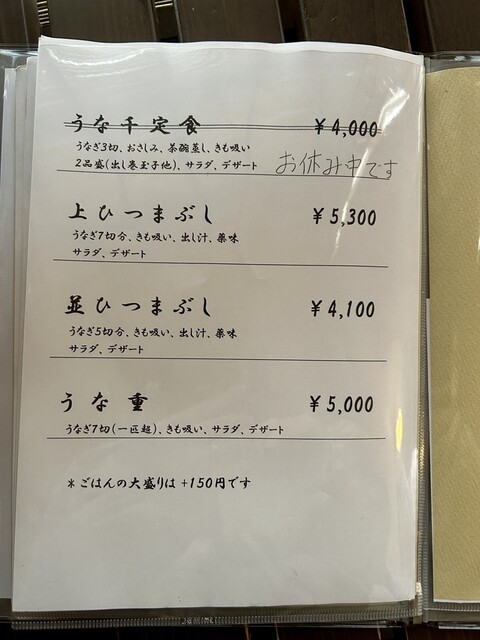 うな千定食 ￥4,000
うなぎ3切、おさしみ、茶碗蒸し、きも吸い
2品盛(出し巻玉子他)、サラダ、デザート お休み中です
上ひつまぶし ￥5,300
うなぎ7切分、きも吸い、出し汁、薬味
サラダ、デザート
並ひつまぶし ￥4,100
うなぎ5切分、きも吸い、出し汁、薬味
サラダ、デザート
うな重 ￥5,000
うなぎ7切(一匹超)、きも吸い、サラダ、デザート
＊ごはんの大盛りは+150円です